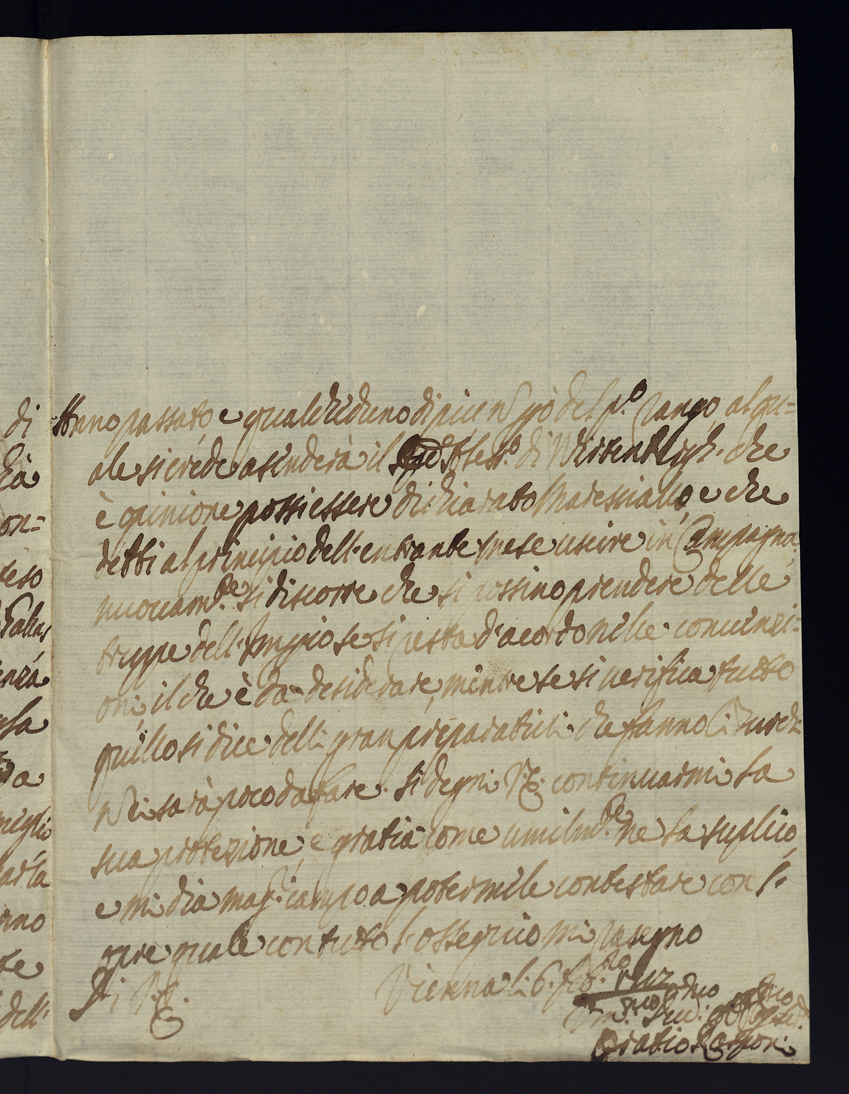 di
Anno passato e qualched'uno di più n del p.o rango al qu=
ale si crede ascenderà il di che
è opinione possi essere dichiarato Maresciallo, e che
on=
detti al principio dell'entrante mese uscire in Campagna
teso
nuovam.te si discorre che si possino prendere delle
truppe dell' se si resta d'acordo nelle convenzi=
enza
oni, il che è da desiderare, mentre se si verifica tutto
quello si dice delli gran preparativi che fanno li
sarà poco da fare. Si degni V.E. continuarmi la
sua protezione, e gratia come umilm.te ne la suplico,
e mi dia mag.r campo a potermele contestare con l'
opre quale con tutto l'ossequio mi rasegno
nno
te
Di V.E.
dell'
Vienna li 6. 
Oratio